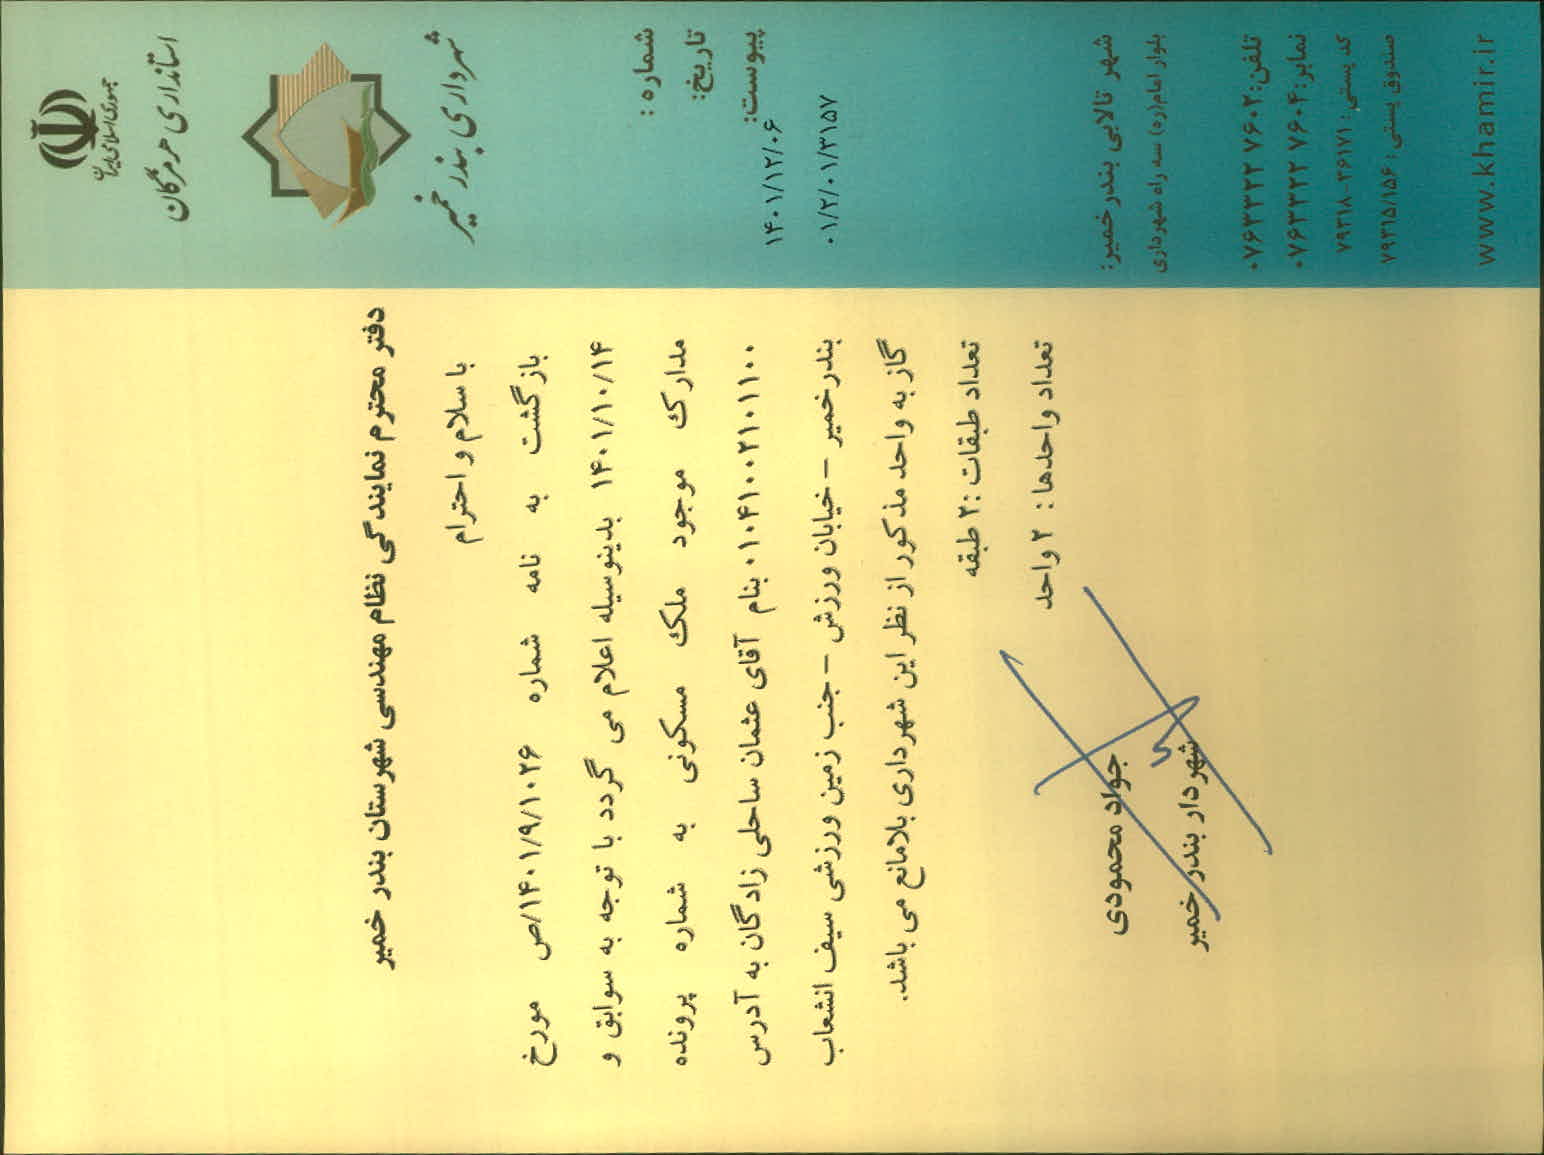 جمهوری اسلامی ایران
استانداری هرمزگان
شهرداری بندر خمیر
شماره :
تاریخ:
پیوست:
۱۴۰۱/۱۲/۰۶
۰۱/۲/۰۱/۳۱۵۷
دفتر محترم نمایندگی نظام مهندسی شهرستان بندر خمیر
با سلام و احترام
بازگشت به نامه شماره ۱۴۰۱/۹/۱۰۲۶/ص مورخ
۱۴۰۱/۱۰/۱۴ بدینوسیله اعلام می گردد با توجه به سوابق و
مدارک موجود ملک مسکونی به شماره پرونده
۰۱۰۴۱۰۰۲۱۰۱۱۰۰ بنام آقای عثمان ساحلی زادگان به آدرس
بندرخمیر – خیابان ورزش – جنب زمین ورزشی سیف انشعاب
گاز به واحد مذکور از نظر این شهرداری بلامانع می باشد.
تعداد طبقات :۲ طبقه
تعداد واحدها : ۲ واحد
جواد محمودی
شهردار بندر خمیر
شهر تالابی بندر خمیر:
بلوار امام(ره) سه راه شهرداری
تلفن: ۰۷۶۳۳۲۲ ۷۶۰۲
نمابر: ۰۷۶۳۳۲۲ ۷۶۰۴
کد پستی : ۷۹۳۱۸-۳۶۱۷۱
صندوق پستی : ۷۹۳۱۵/۱۵۶
www.khamir.ir